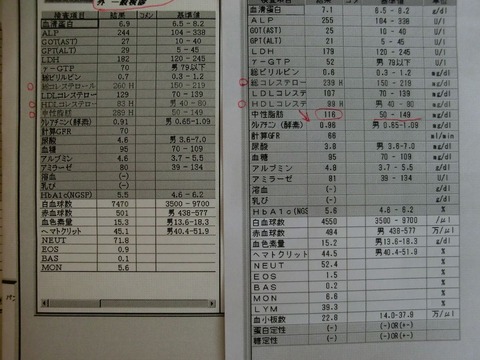 外 一般検診
検査項目 結果 コメン 基準値
血清蛋白 6.9 6.5 - 8.2
ALP 244 104 - 338
GOT(AST) 27 10 - 40
GPT(ALT) 29 5 - 45
LDH 182 120 - 245
γ-GTP 52 男 79以下
総ビリルビン 0.7 0.3 - 1.2
総コレステロール 260 H 150 - 219
LDLコレステロー 129 70 - 139
HDLコレステロー 83 H 男 40 - 80
中性脂肪 289 H 50 - 149
クレアチニン(酵素) 0.91 男 0.65-1.09
計算GFR 70
尿酸 4.6 男 3.6-7.0
血糖 95 70 - 109
アルブミン 4.6 3.7 - 5.5
アミラーゼ 90 39 - 134
溶血 (-)
乳び (-)
HbA1c(NGSP) 5.5 4.6 - 6.2
白血球数 7470 3500 - 9700
赤血球数 501 男 438-577
血色素量 15.3 男13.6-18.3
ヘマトクリット 45.1 男40.4-51.9
NEUT 71.8
EOS 0.9
BAS 0.1
MON 5.6
検査項目 結果 コメン 基準値 単位
血清蛋白 7.1 6.5 - 8.2 g/dl
ALP 255 104 - 338 U/l
GOT(AST) 25 10 - 40 U/l
GPT(ALT) 21 5 - 45 U/l
LDH 179 120 - 245 U/l
γ-GTP 52 男 79以下 U/l
総ビリルビン 0.6 0.3 - 1.2 mg/dl
総コレステロー 239 H 150 - 219 mg/dl
LDLコレステ 107 70 - 139 mg/dl
HDLコレステ 99 H 男 40 - 80 mg/dl
中性脂肪 116 50 - 149 mg/dl
クレアチン(酵素) 0.96 男 0.65-1.09 mg/dl
計算GFR 66 ml/min
尿酸 3.8 男 3.6-7.0 mg/dl
血糖 95 70 - 109 mg/dl
アルブミン 4.8 3.7 - 5.5 g/dl
アミラーゼ 81 39 - 134 U/l
溶血 (-)
乳び (-)
HbA1c(NGS 5.6 4.6 - 6.2 %
白血球数 4550 3500 - 9700 /μl
赤血球数 494 男 438-577 万/μl
血色素量 15.2 男13.6-18.3 g/dl
ヘマトクリット 44.5 男40.4-51.9 %
NEUT 52.4 %
EOS 1.5 %
BAS 0.2 %
MON 6.6 %
LYM 39.3 %
血小板数 22.8 14.0-37.9 万/μl
蛋白定性 (-) (-)OR(+-)
糖定性 (-) (-)OR(+-)